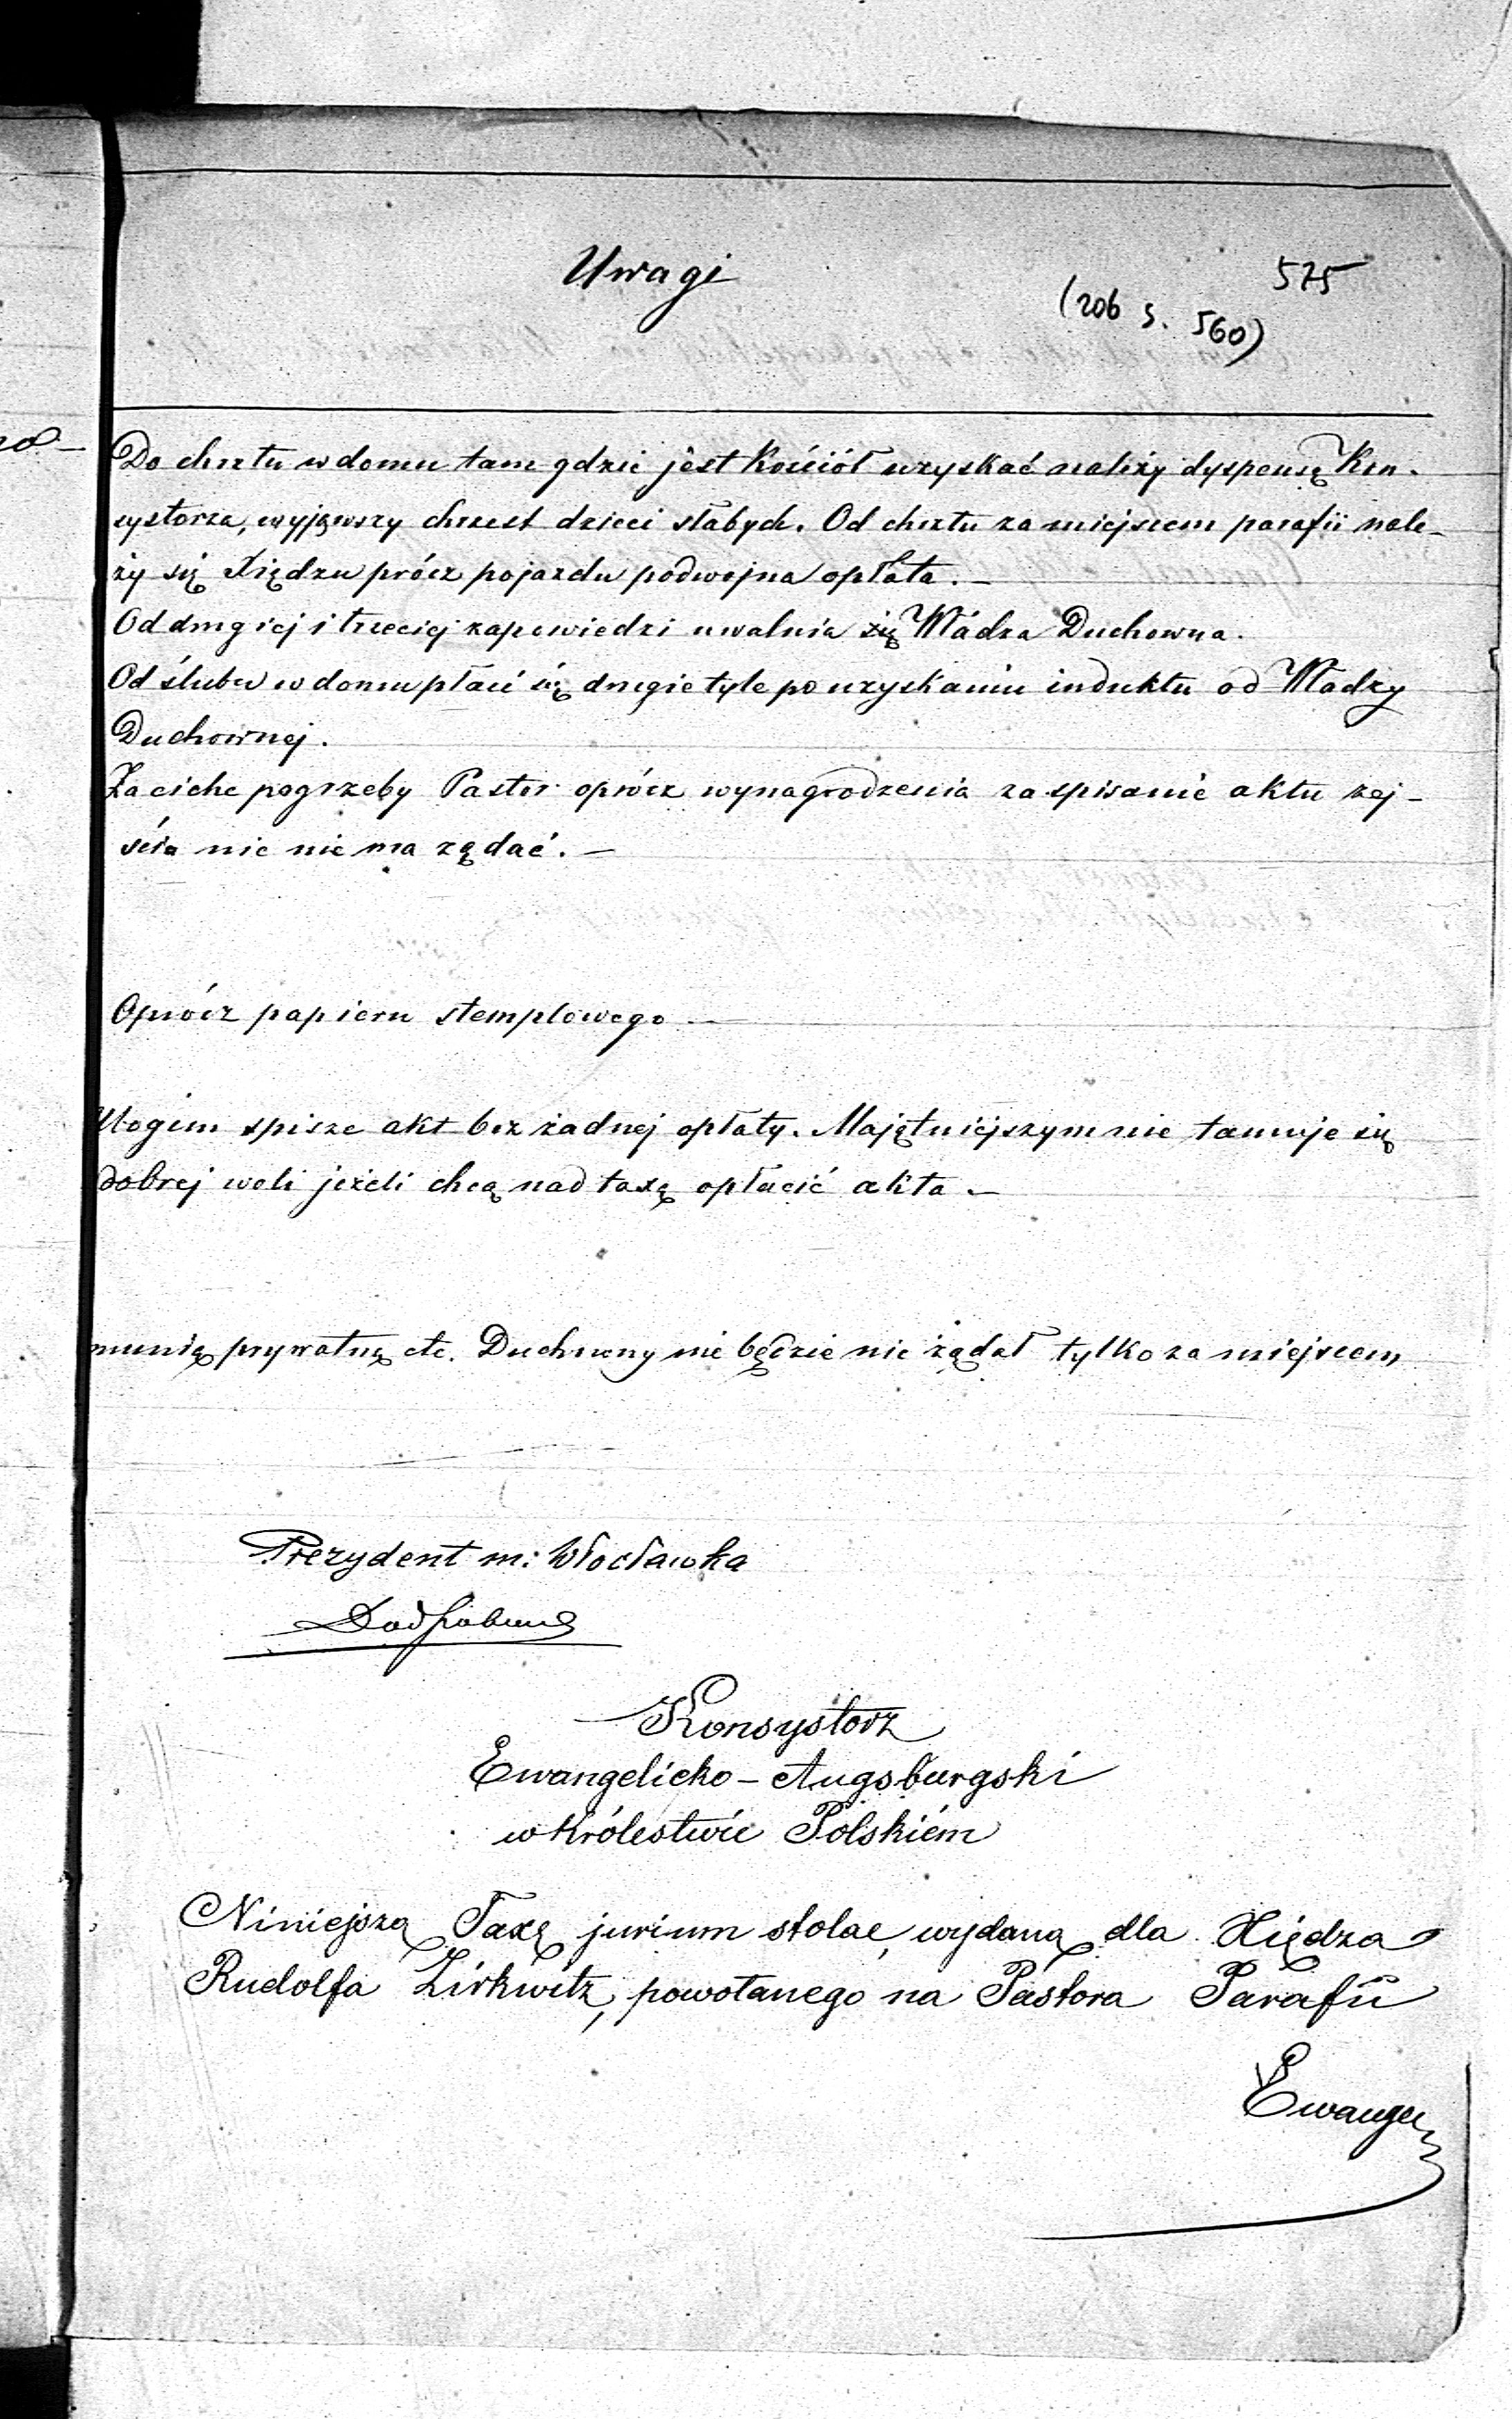 Uwagi
575
(206 s. 560)
Do chrztu w domu tam gdzie jest Kościół uzyskać należy dyspensę Kon-
systorza, wyjąwszy chrzest dzieci słabych. Od chrztu za miejscem parafii nale-
ży się Xiędzu prócz pojazdu podwojna opłata. —
Od drugiej i trzeciej zapowiedzi uwalnia się Władza Duchowna.
Od ślubu w domu płaci się drugie tyle po uzyskaniu indultu od Władzy
Duchownej.
Za ciche pogrzeby Pastor oprócz wynagrodzenia za spisanie aktu zej-
ścia nic nie ma żądać. —
Oprócz papieru stemplowego —
Ubogim spisze akt bez żadnej opłaty. Majętniejszym nie tamuje się
dobrej woli jeżeli chcą nad taxę opłacić akta. —
munią prywatną etc. Duchowny nie będzie nic żądał tylko za miejscem
Prezydent m: Włocławka
Konsystorz
Ewangelicko-Augsburgski
w Królestwie Polskiém
Niniejszą Taxę jurium stolae, wydaną dla Xiędza
Rudolfa Zirkwitz, powołanego na Pastora Parafii
Ewange